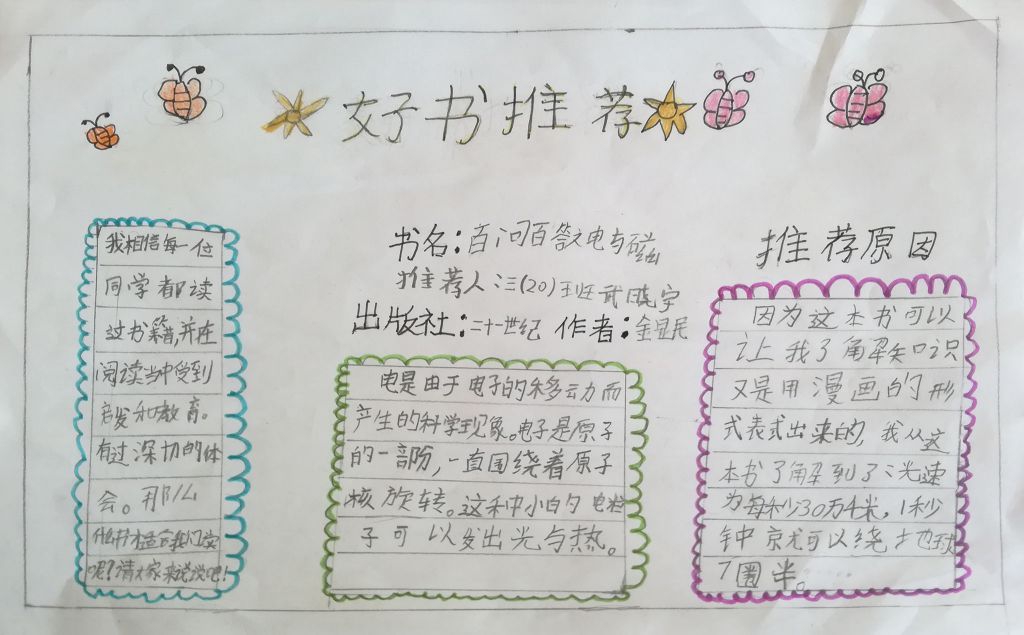 好书推荐
我相信每一位
同学都读
过书籍,并在
阅读当中受到
启发和教育。
有过深切的体
会。那么
什么书适合我们读
呢?请大家来说说吧!
书名:百问百答电与磁
推荐人:三(20)班武晓宇
出版社:二十一世纪 作者:金显民
电是由于电子的移动而
产生的科学现象。电子是原子
的一部份,一直围绕着原子
核旋转。这种小的电粒
子可以发出光与热。
推荐原因
因为这本书可以
让我了解知识
又是用漫画的形
式表式出来的,我从这
本书了解到了光速
为每秒30万千米,1秒
钟竟可以绕地球
7圈半。